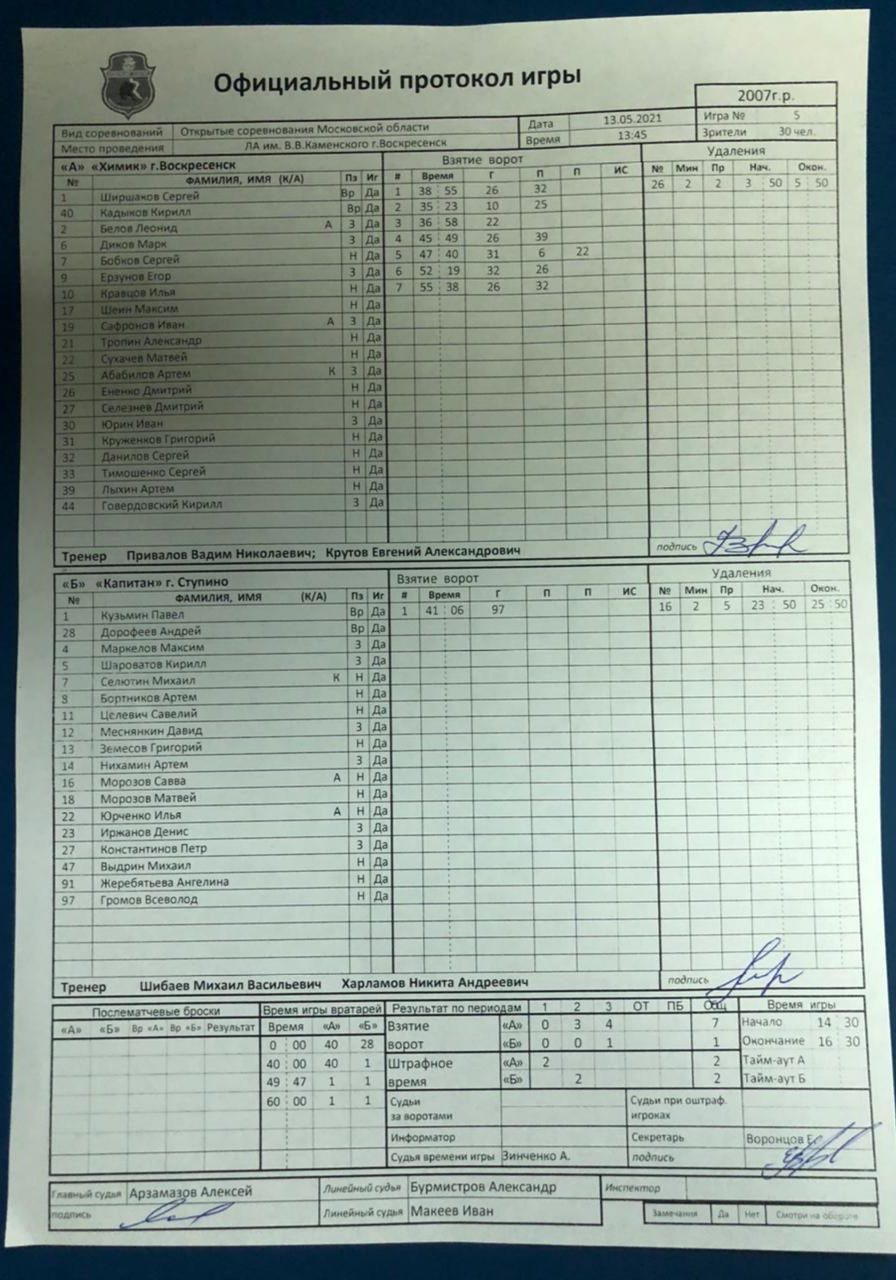 Официальный протокол игры
2007г.р.
Вид соревнований Открытые соревнования Московской области Дата 13.05.2021 Игра № 5
Место проведения ЛА им. В.В.Каменского г.Воскресенск Время 13:45 Зрители 30 чел.
«А» «Химик» г.Воскресенск Взятие ворот Удаления
№ ФАМИЛИЯ, ИМЯ (К/А) Пз Иг # Время Г П П ИС № Мин Пр Нач. Окон.
1 Ширшаков Сергей Вр Да 1 38 55 26 32 26 2 2 3 50 5 50
40 Кадыков Кирилл Вр Да 2 35 23 10 25
2 Белов Леонид А З Да 3 36 58 22
6 Диков Марк З Да 4 45 49 26 39
7 Бобков Сергей Н Да 5 47 40 31 6 22
9 Ерзунов Егор З Да 6 52 19 32 26
10 Кравцов Илья Н Да 7 55 38 26 32
17 Шеин Максим Н Да
19 Сафронов Иван А З Да
21 Тропин Александр Н Да
22 Сухачев Матвей Н Да
25 Абабилов Артем К З Да
26 Ененко Дмитрий Н Да
27 Селезнев Дмитрий Н Да
30 Юрин Иван З Да
31 Круженков Григорий Н Да
32 Данилов Сергей Н Да
33 Тимошенко Сергей Н Да
39 Лыхин Артем Н Да
44 Говердовский Кирилл З Да
Тренер Привалов Вадим Николаевич; Крутов Евгений Александрович подпись
«Б» «Капитан» г. Ступино Взятие ворот Удаления
№ ФАМИЛИЯ, ИМЯ (К/А) Пз Иг # Время Г П П ИС № Мин Пр Нач. Окон.
1 Кузьмин Павел Вр Да 1 41 06 97 16 2 5 23 50 25 50
28 Дорофеев Андрей Вр Да
4 Маркелов Максим З Да
5 Шароватов Кирилл З Да
7 Селютин Михаил К Н Да
8 Бортников Артем Н Да
11 Целевич Савелий Н Да
12 Меснянкин Давид З Да
13 Земесов Григорий Н Да
14 Нихамин Артем З Да
16 Морозов Савва А Н Да
18 Морозов Матвей Н Да
22 Юрченко Илья А Н Да
23 Иржанов Денис З Да
27 Константинов Петр З Да
47 Выдрин Михаил Н Да
91 Жеребятьева Ангелина Н Да
97 Громов Всеволод Н Да
Тренер Шибаев Михаил Васильевич Харламов Никита Андреевич подпись
Послематчевые броски Время игры вратарей Результат по периодам 1 2 3 ОТ ПБ Общ Время игры
«А» «Б» Вр «А» Вр «Б» Результат Время «А» «Б» Взятие «А» 0 3 4 7 Начало 14 30
0 00 40 28 ворот «Б» 0 0 1 1 Окончание 16 30
40 00 40 1 Штрафное «А» 2 2 Тайм-аут А
49 47 1 1 время «Б» 2 2 Тайм-аут Б
60 00 1 1 Судьи за воротами Судьи при оштраф. игроках
Информатор Секретарь Воронцов Е
Судья времени игры Зинченко А. подпись
Главный судья Арзамазов Алексей Линейный судья Бурмистров Александр Инспектор
подпись Линейный судья Макеев Иван Замечания Да Нет Смотри на обороте